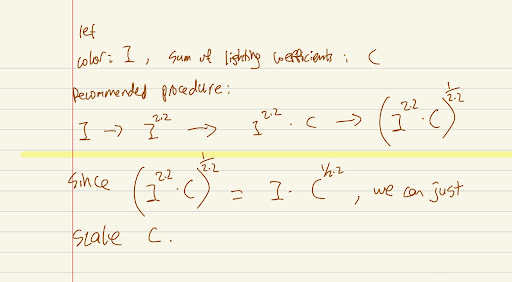 let
color: I , sum of lighting coefficients : C
Recommended procedure:
I → I^2.2 → I^2.2 · C → (I^2.2 · C)^1/2.2
since (I^2.2 · C)^1/2.2 = I · C^1/2.2 , we can just
scale C.